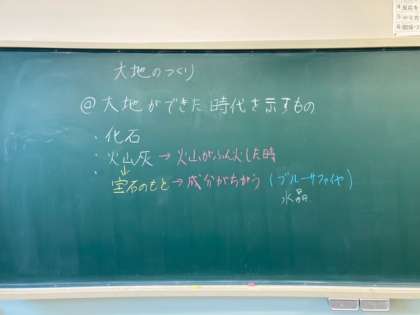 大地のつくり
@大地ができた時代を示すもの
・化石
・火山灰→火山がふん火した時
・ ↓
宝石のもと→成分がちがう(ブルーサファイヤ)
水晶